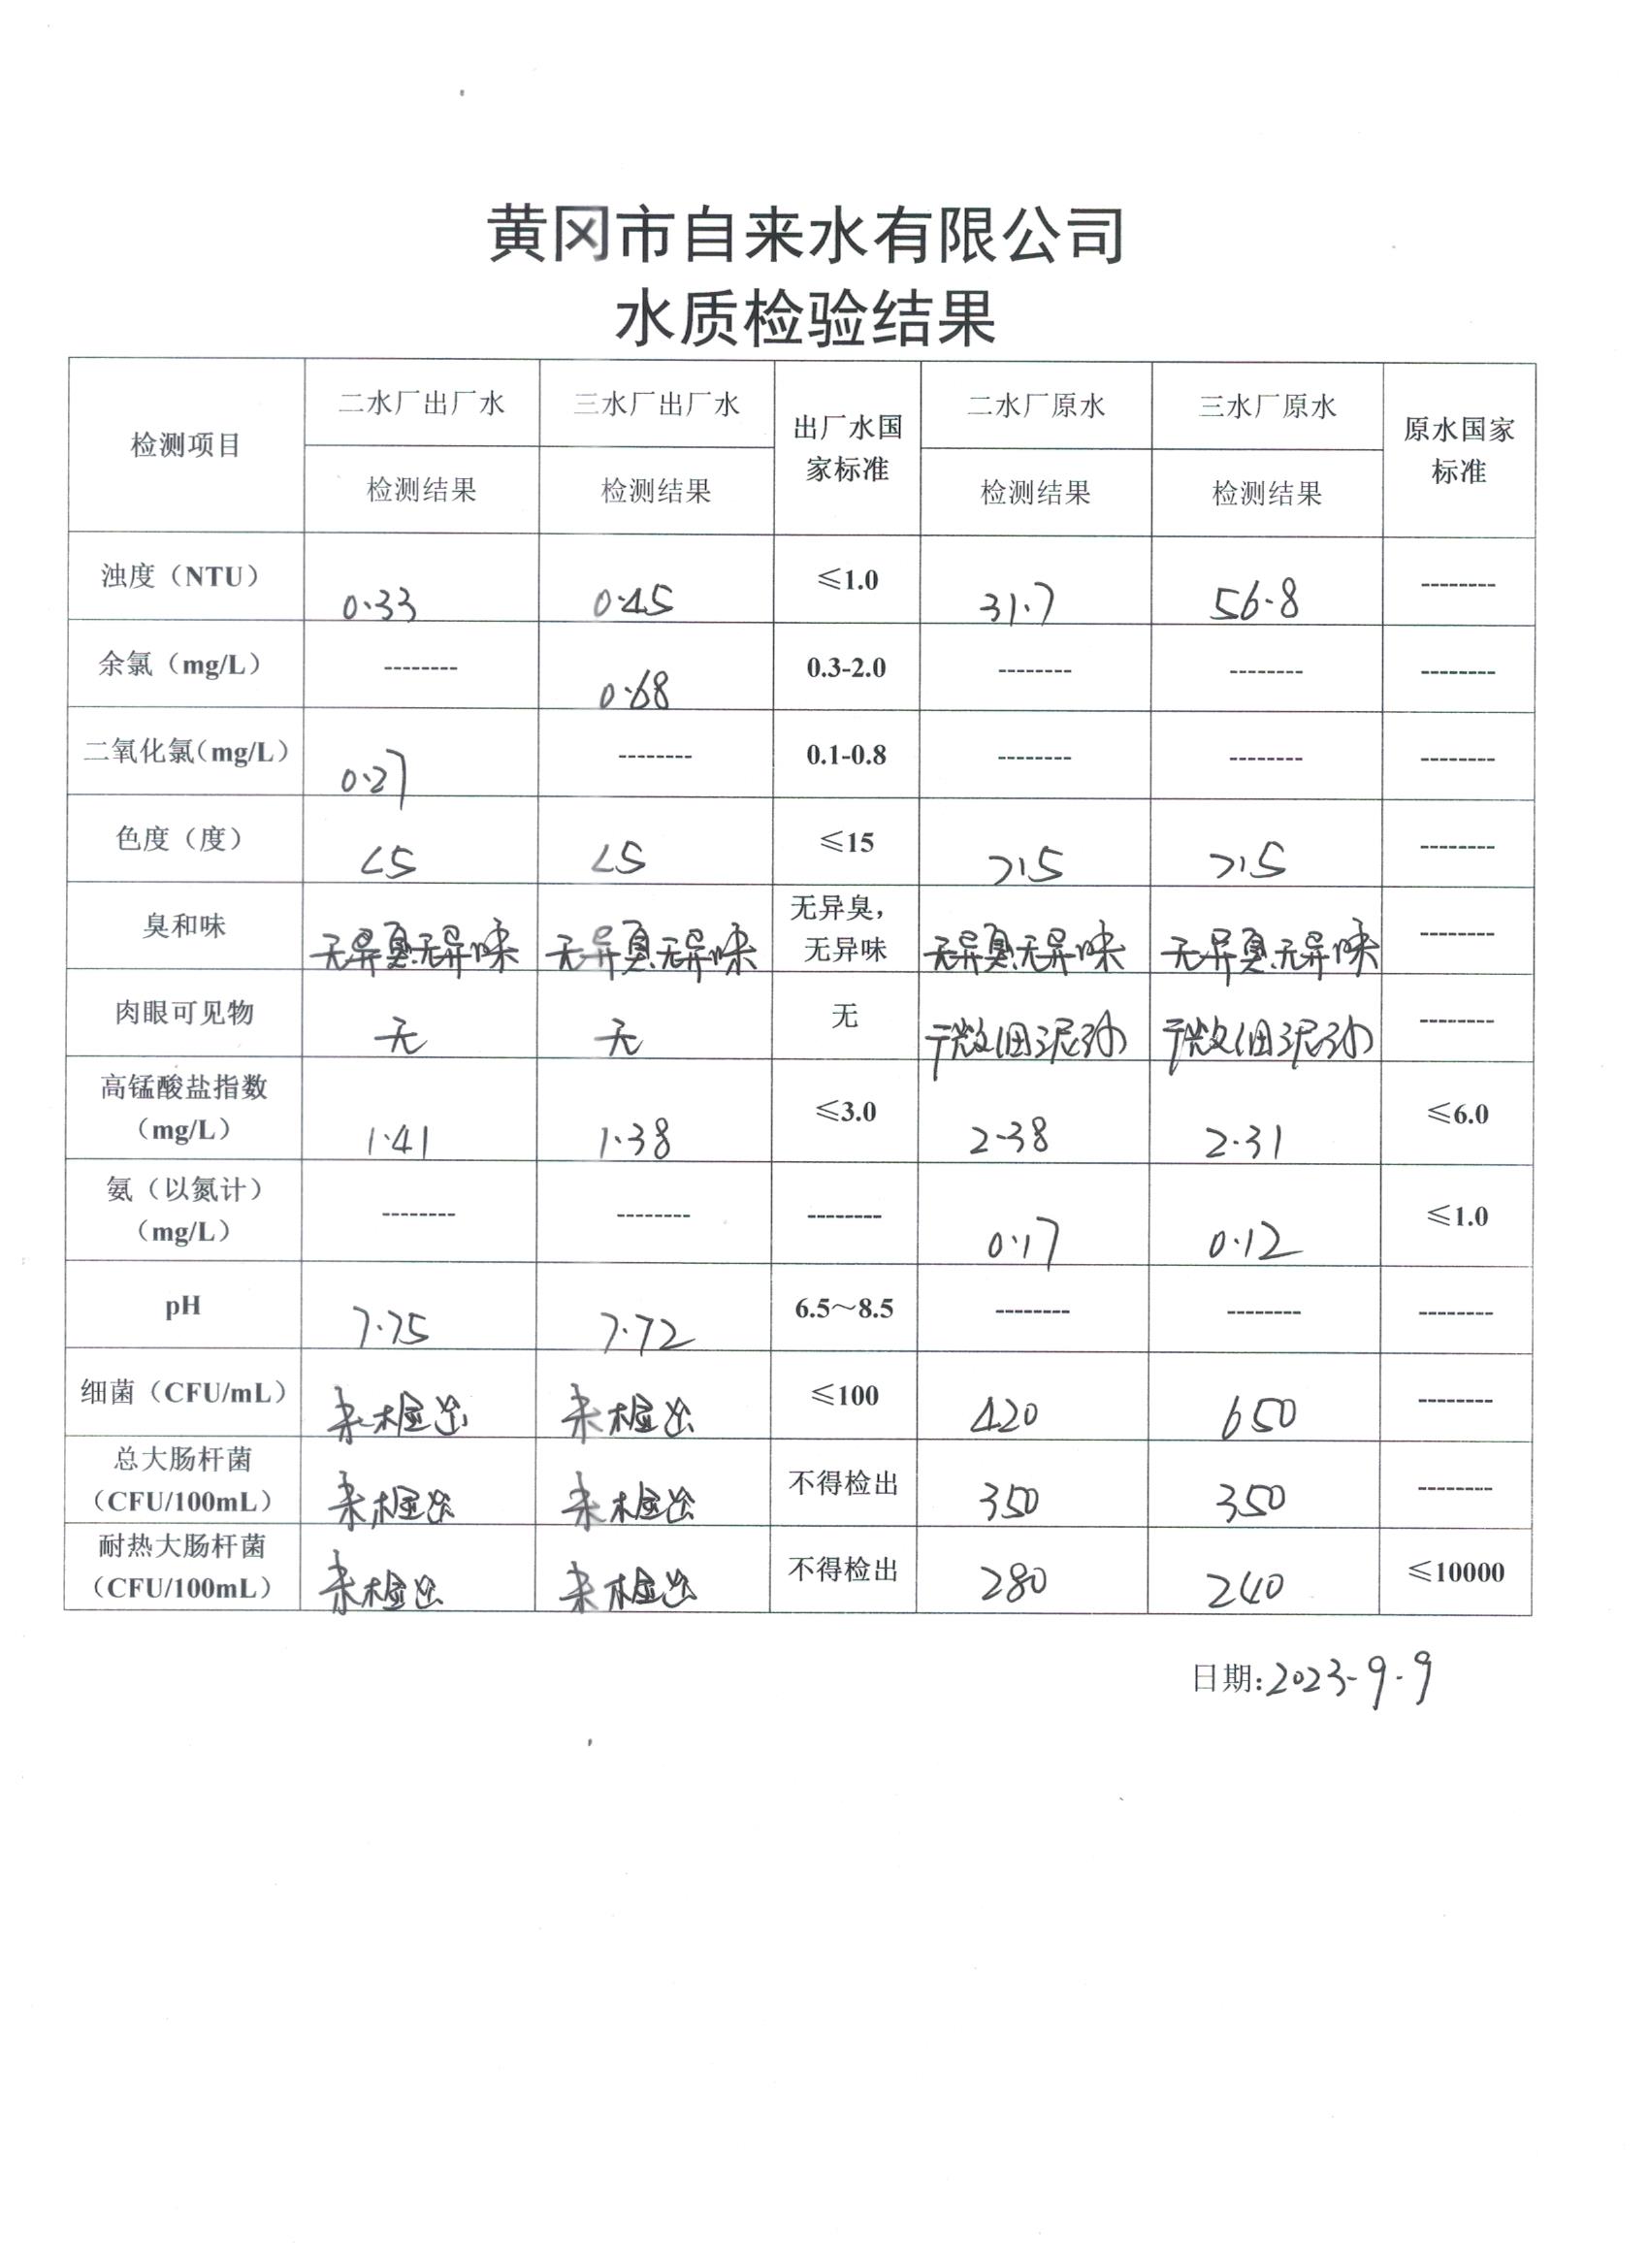 黄冈市自来水有限公司
水质检验结果
检测项目 二水厂出厂水 三水厂出厂水 出厂水国家标准 二水厂原水 三水厂原水 原水国家标准
检测结果 检测结果 检测结果 检测结果
浊度（NTU） 0.33 0.45 ≤1.0 31.7 56.8 --------
余氯（mg/L） -------- 0.68 0.3-2.0 -------- -------- --------
二氧化氯（mg/L） 0.27 -------- 0.1-0.8 -------- -------- --------
色度（度） <5 <5 ≤15 >15 >15 --------
臭和味 无异臭.无异味 无异臭.无异味 无异臭，无异味 无异臭.无异味 无异臭.无异味 --------
肉眼可见物 无 无 无 微细泥沙 微细泥沙 --------
高锰酸盐指数（mg/L） 1.41 1.38 ≤3.0 2.38 2.31 ≤6.0
氨（以氮计）（mg/L） -------- -------- -------- 0.17 0.12 ≤1.0
pH 7.75 7.72 6.5～8.5 -------- -------- --------
细菌（CFU/mL） 未检出 未检出 ≤100 420 650 --------
总大肠杆菌（CFU/100mL） 未检出 未检出 不得检出 350 350 --------
耐热大肠杆菌（CFU/100mL） 未检出 未检出 不得检出 280 240 ≤10000
日期:2023-9-9